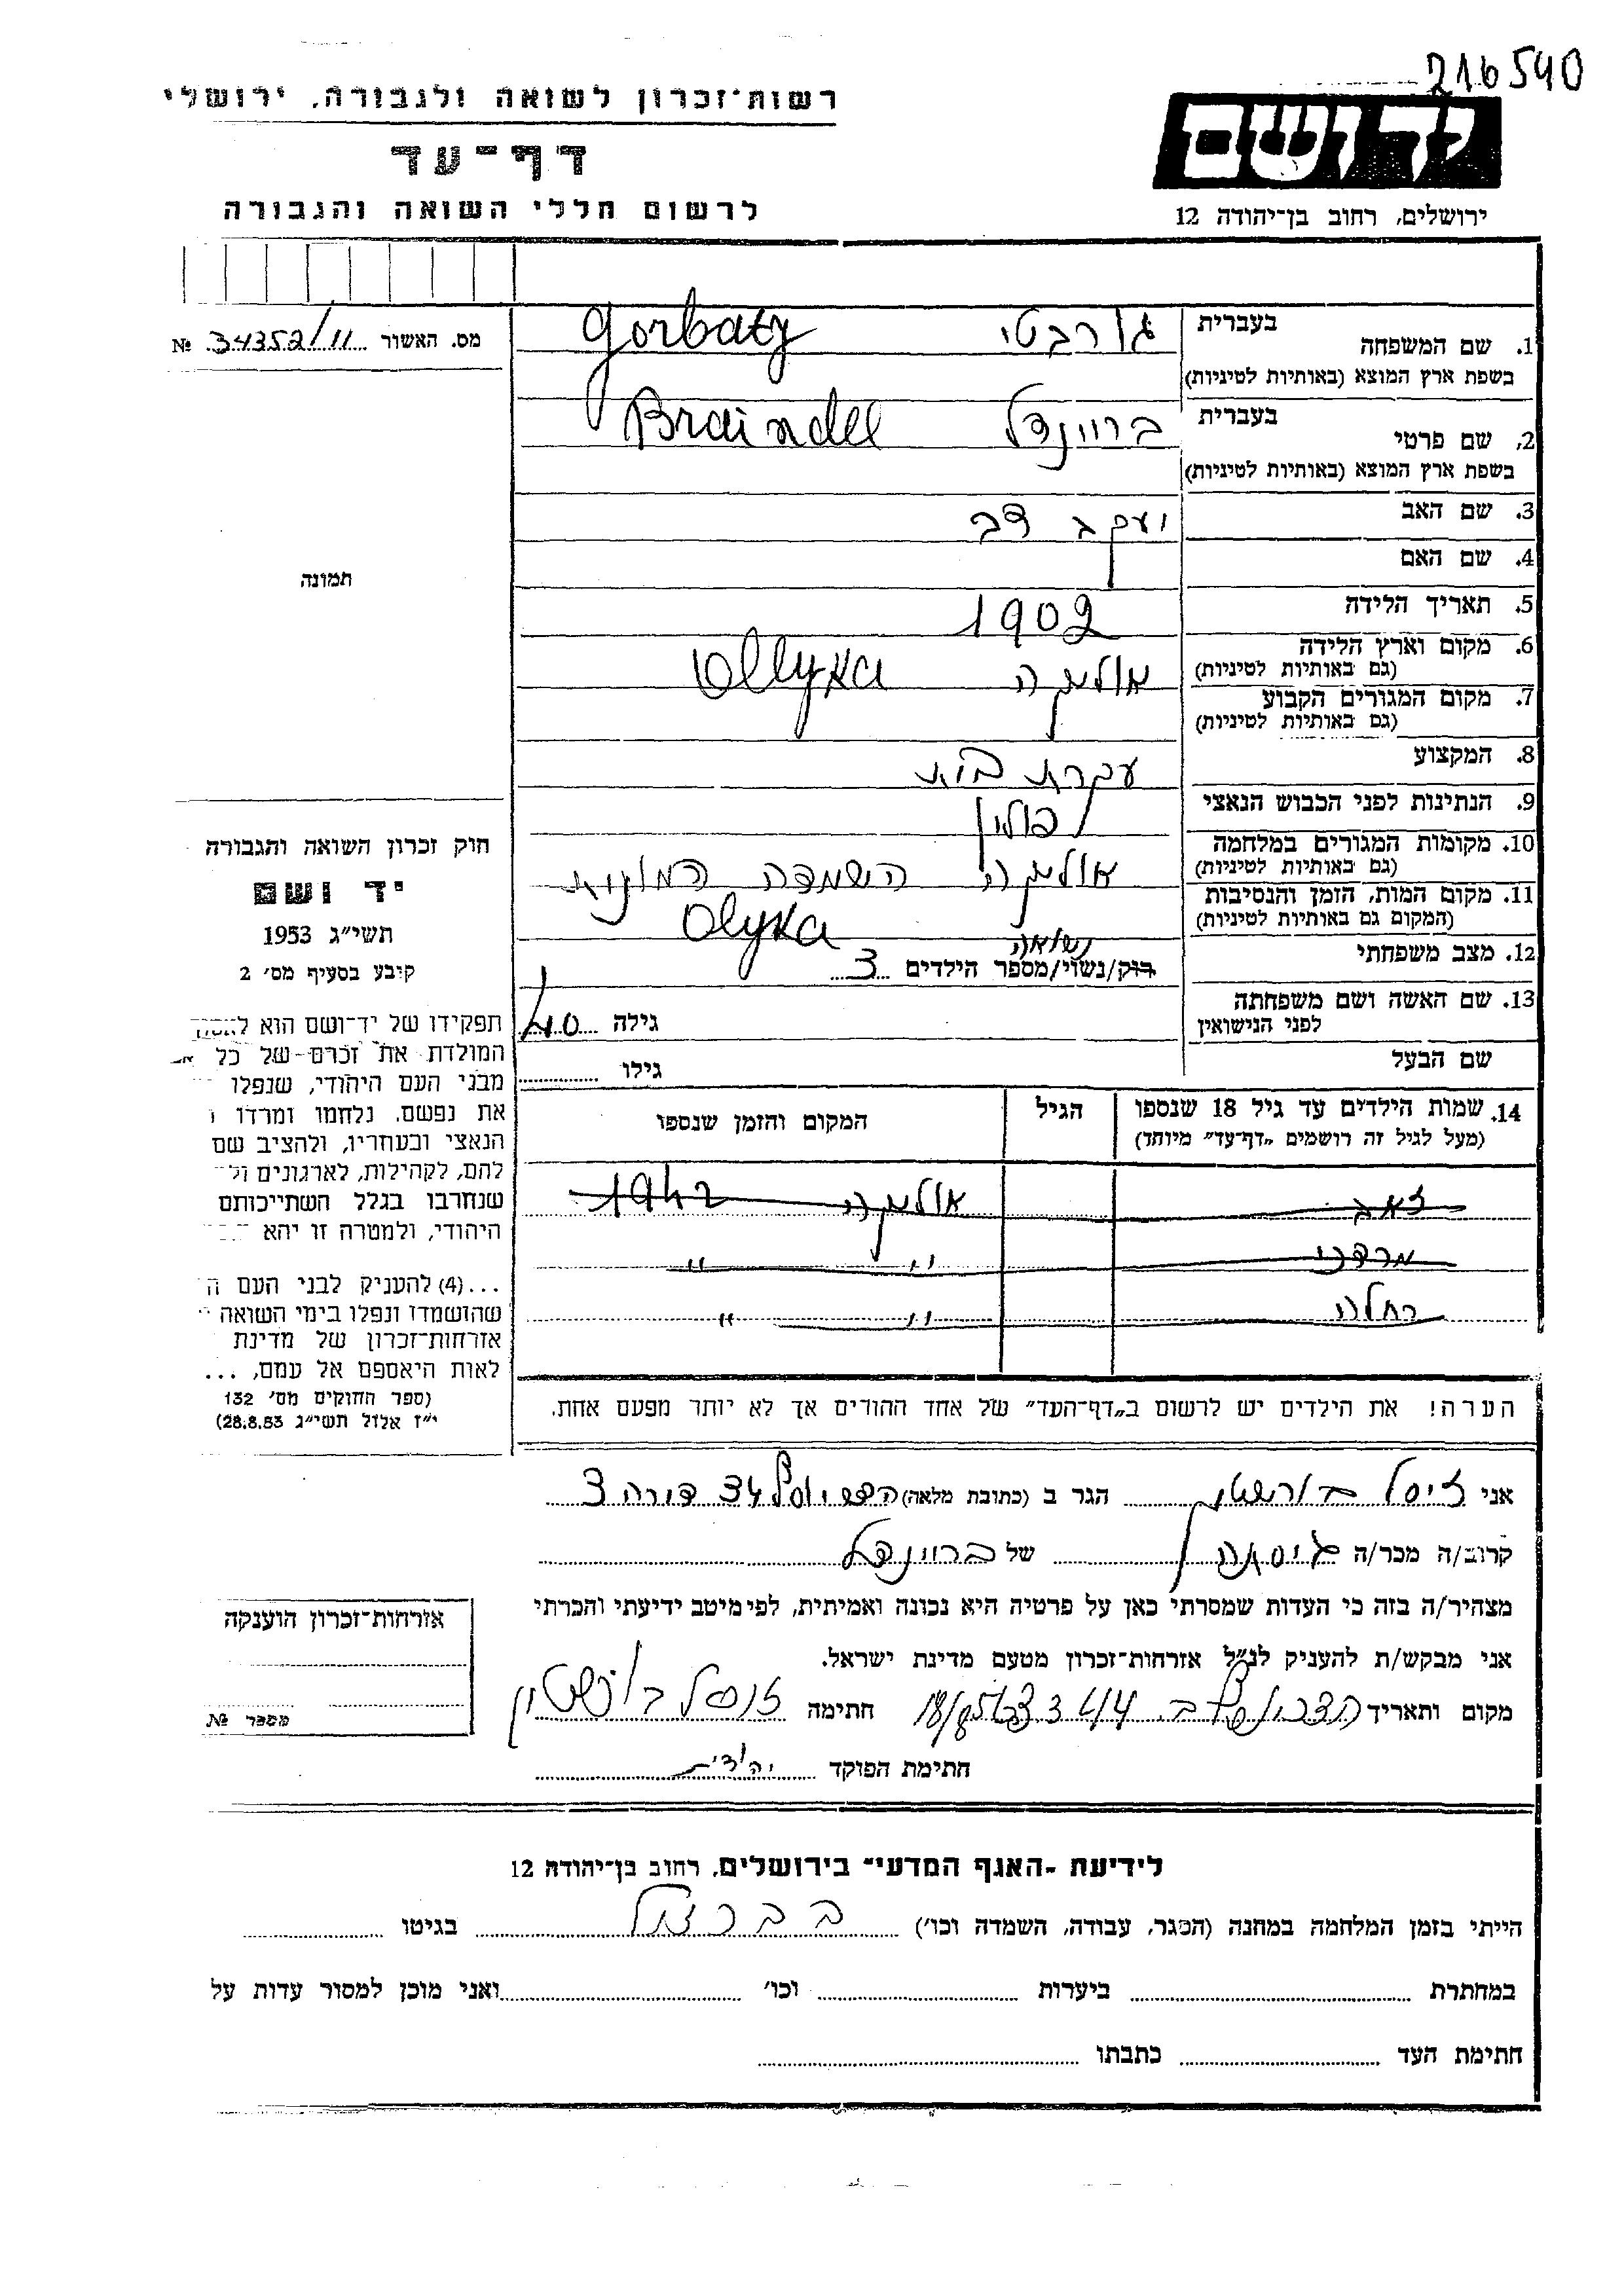 216540
רשות־זכרון לשואה ולגבורה, ירושלי
דף־עד
לרשום חללי השואה והגבורה
ידושם
ירושלים, רחוב בן־יהודה 12
מס. האשור 34352/11 №
1. שם המשפחה בעברית גורבטי Gorbaty
בשפת ארץ המוצא (באותיות לטיניות)
2. שם פרטי בעברית בריינדל Braindel
בשפת ארץ המוצא (באותיות לטיניות)
3. שם האב יעקב דב
4. שם האם
תמונה
5. תאריך הלידה 1902
6. מקום וארץ הלידה
(גם באותיות לטיניות) אוליקה Ollyka
7. מקום המגורים הקבוע
(גם באותיות לטיניות)
8. המקצוע עקרת בית
9. הנתינות לפני הכבוש הנאצי פולין
10. מקומות המגורים במלחמה
(גם באותיות לטיניות)
11. מקום המות, הזמן והנסיבות אוליקה השמדה המונית
(המקום גם באותיות לטיניות) Olyka
12. מצב משפחתי נשואה
רוק/נשוי/מספר הילדים 3
13. שם האשה ושם משפחתה
לפני הנישואין גילה 40
שם הבעל גילו
14. שמות הילדים עד גיל 18 שנספו הגיל המקום והזמן שנספו
(מעל לגיל זה רושמים „דף־עד” מיוחד)
זאב אוליקה 1942
מרדכי " "
רחלה " "
הערה! את הילדים יש לרשום ב„דף־העד” של אחד ההורים אך לא יותר מפעם אחת.
חוק זכרון השואה והגבורה
יד ושם
תשי״ג 1953
קובע בסעיף מס׳ 2
תפקידו של יד־ושם הוא לאסוף
המולדת את זכרם של כל
מבני העם היהודי, שנפלו
את נפשם. נלחמו ומרדו
הנאצי ובעוזריו, ולהציב שם
להם, לקהילות, לארגונים ול
שנחרבו בגלל השתייכותם
היהודי, ולמטרה זו יהא
...(4) להעניק לבני העם ה
שהושמדו ונפלו בימי השואה
אזרחות־זכרון של מדינת
לאות היאספם אל עמם, ...
(ספר החוקים מס׳ 132
י״ז אלול תשי״ג 28.8.53)
אני זיסל בורשטין הגר ב (כתובת מלאה) 34 דירה 3
קרוב/ה מכר/ה גיסה של בריינדל
מצהיר/ה בזה כי העדות שמסרתי כאן על פרטיה היא נכונה ואמיתית, לפי מיטב ידיעתי והכרתי
אני מבקש/ת להעניק לנ״ל אזרחות־זכרון מטעם מדינת ישראל.
מקום ותאריך חתימה זיסל בורשטין
חתימת הפוקד יהודית
אזרחות־זכרון הוענקה
מספר №
לידיעת ־האגף המדעי־ בירושלים, רחוב בן־יהודה 12
הייתי בזמן המלחמה במחנה (הסגר, עבודה, השמדה וכו׳) בברזיל בגיטו
במחתרת ביערות וכו׳ ואני מוכן למסור עדות על
חתימת העד כתבתו